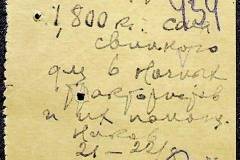 1,800 кг. сала
свиного
для в ночных
трактористов
и их помощ.
ников
21-22/